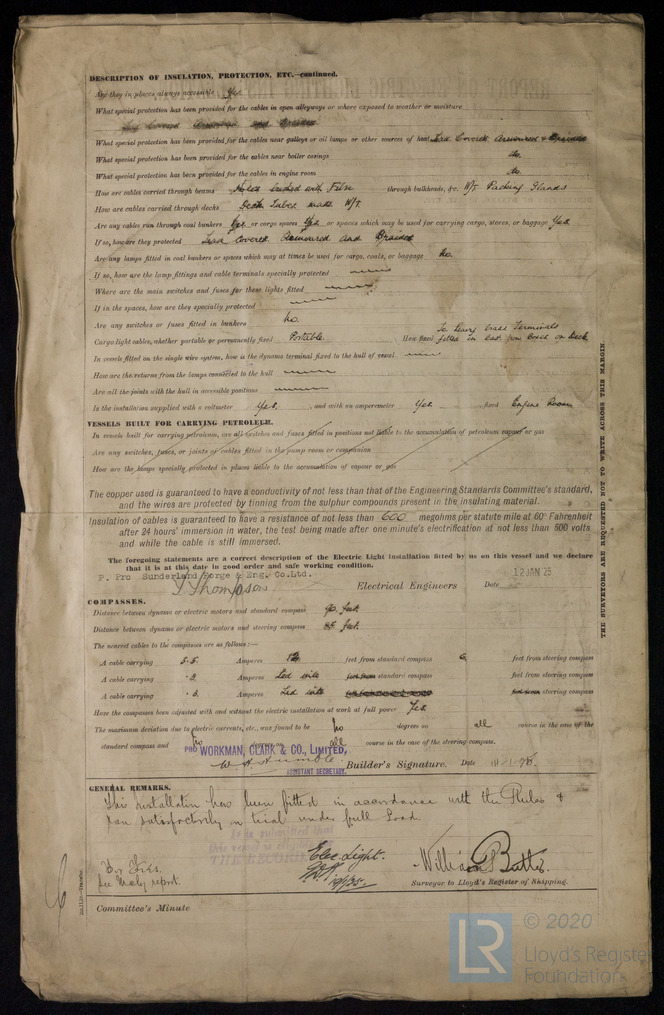 DESCRIPTION OF INSULATION, PROTECTION, ETC.—continued.
Are they in places always accessible Yes
What special protection has been provided for the cables in open alleyways or where exposed to weather or moisture
Lead Covered Armoured and Braided
What special protection has been provided for the cables near galleys or oil lamps or other sources of heat Lead Covered Armoured & Braided
What special protection has been provided for the cables near boiler casings do.
What special protection has been provided for the cables in engine room do.
How are cables carried through beams Holes bushed with Fibre through bulkheads, &c. W/T. Packing Glands
How are cables carried through decks Deck Tubes made W/T.
Are any cables run through coal bunkers Yes or cargo spaces Yes or spaces which may be used for carrying cargo, stores, or baggage Yes
If so, how are they protected Lead Covered Armoured and Braided
Are any lamps fitted in coal bunkers or spaces which may at times be used for cargo, coals, or baggage No.
If so, how are the lamp fittings and cable terminals specially protected
Where are the main switches and fuses for these lights fitted
If in the spaces, how are they specially protected
Are any switches or fuses fitted in bunkers No.
Cargo light cables, whether portable or permanently fixed Portable. How fixed To Heavy brass Terminals
fitted in Cast Iron Boxes on Deck
In vessels fitted on the single wire system, how is the dynamo terminal fixed to the hull of vessel
How are the returns from the lamps connected to the hull
Are all the joints with the hull in accessible positions
In the installation supplied with a voltmeter Yes. and with an amperemeter Yes fixed Engine Room
VESSELS BUILT FOR CARRYING PETROLEUM.
In vessels built for carrying petroleum, are all switches and fuses fitted in positions not liable to the accumulation of petroleum vapour or gas
Are any switches, fuses, or joints of cables fitted in the pump room or companion
How are the lamps specially protected in places liable to the accumulation of vapour or gas
The copper used is guaranteed to have a conductivity of not less than that of the Engineering Standards Committee's standard,
and the wires are protected by tinning from the sulphur compounds present in the insulating material.
Insulation of cables is guaranteed to have a resistance of not less than 600 megohms per statute mile at 60° Fahrenheit
after 24 hours' immersion in water, the test being made after one minute's electrification at not less than 500 volts
and while the cable is still immersed.
The foregoing statements are a correct description of the Electric Light installation fitted by us on this vessel and we declare
that it is at this date in good order and safe working condition.
P. Pro Sunderland Forge & Eng. Co.Ltd.
Thompson Electrical Engineers Date 12 JAN 25
COMPASSES.
Distance between dynamo or electric motors and standard compass 90 feet
Distance between dynamo or electric motors and steering compass 85 feet.
The nearest cables to the compasses are as follows:—
A cable carrying 5.5. Amperes feet from standard compass 6 feet from steering compass
A cable carrying .3 Amperes Led into feet from standard compass feet from steering compass
A cable carrying .3. Amperes Led into feet from steering compass
Have the compasses been adjusted with and without the electric installation at work at full power Yes.
The maximum deviation due to electric currents, etc., was found to be No degrees on all course in the case of the
standard compass and No degrees on all course in the case of the steering compass.
PRO WORKMAN, CLARK & CO., LIMITED,
ASSISTANT SECRETARY. Builder's Signature. Date
GENERAL REMARKS.
This installation has been fitted in accordance with the Rules &
ran satisfactorily on trial under full Load.
It is submitted that
this vessel is
THE RECORD
Elec. Light.
see Mchy report.
19/1/25
William Butler
Surveyor to Lloyd's Register of Shipping.
Committee's Minute
THE SURVEYORS ARE REQUESTED NOT TO WRITE ACROSS THIS MARGIN.
LR
© 2020
Lloyd's Register
Foundation